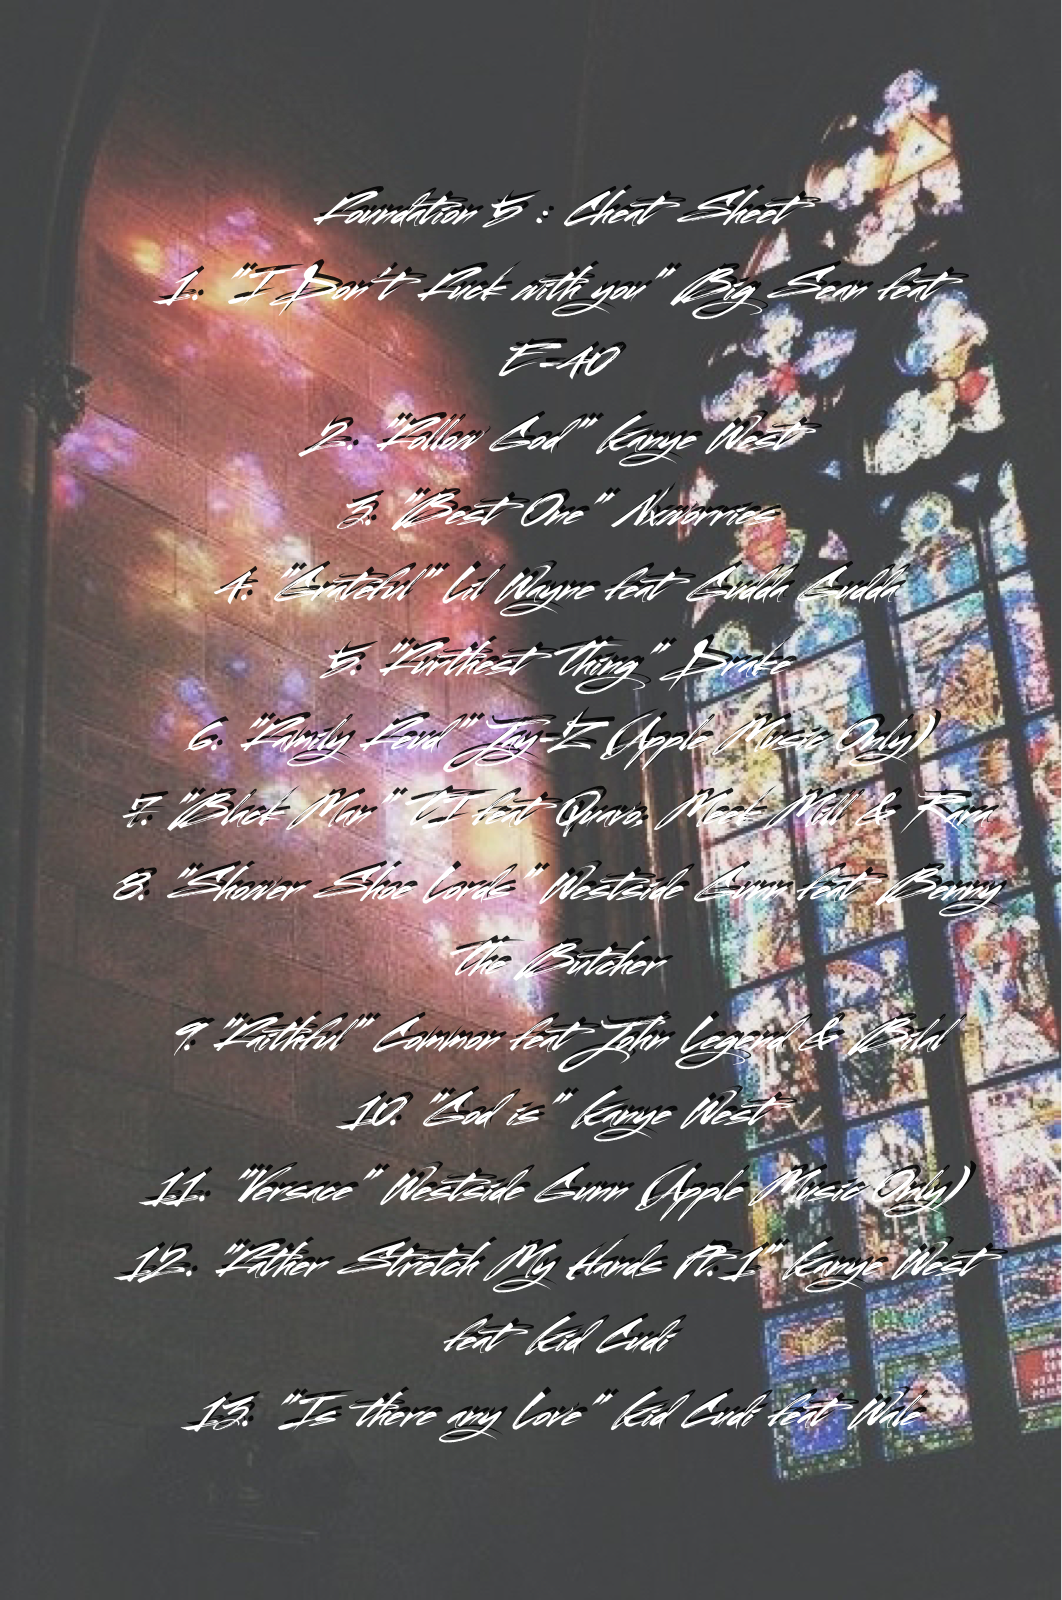 Foundation 5 : Cheat Sheet
1. "I Don't Fuck with you" Big Sean feat
E-40
2. "Follow God" Kanye West
3. "Best One" Nxworries
4. "Grateful" Lil Wayne feat Gudda Gudda
5. "Furthest Thing" Drake
6. "Family Feud" Jay-Z (Apple Music Only)
7. "Black Man" TI feat Quavo, Meek Mill & Rara
8. "Shower Shoe Lords" Westside Gunn feat Benny
The Butcher
9. "Faithful" Common feat John Legend & Bilal
10. "God is" Kanye West
11. "Versace" Westside Gunn (Apple Music Only)
12. "Father Stretch My Hands Pt. 1" Kanye West
feat Kid Cudi
13. "Is there any Love" Kid Cudi feat Wale